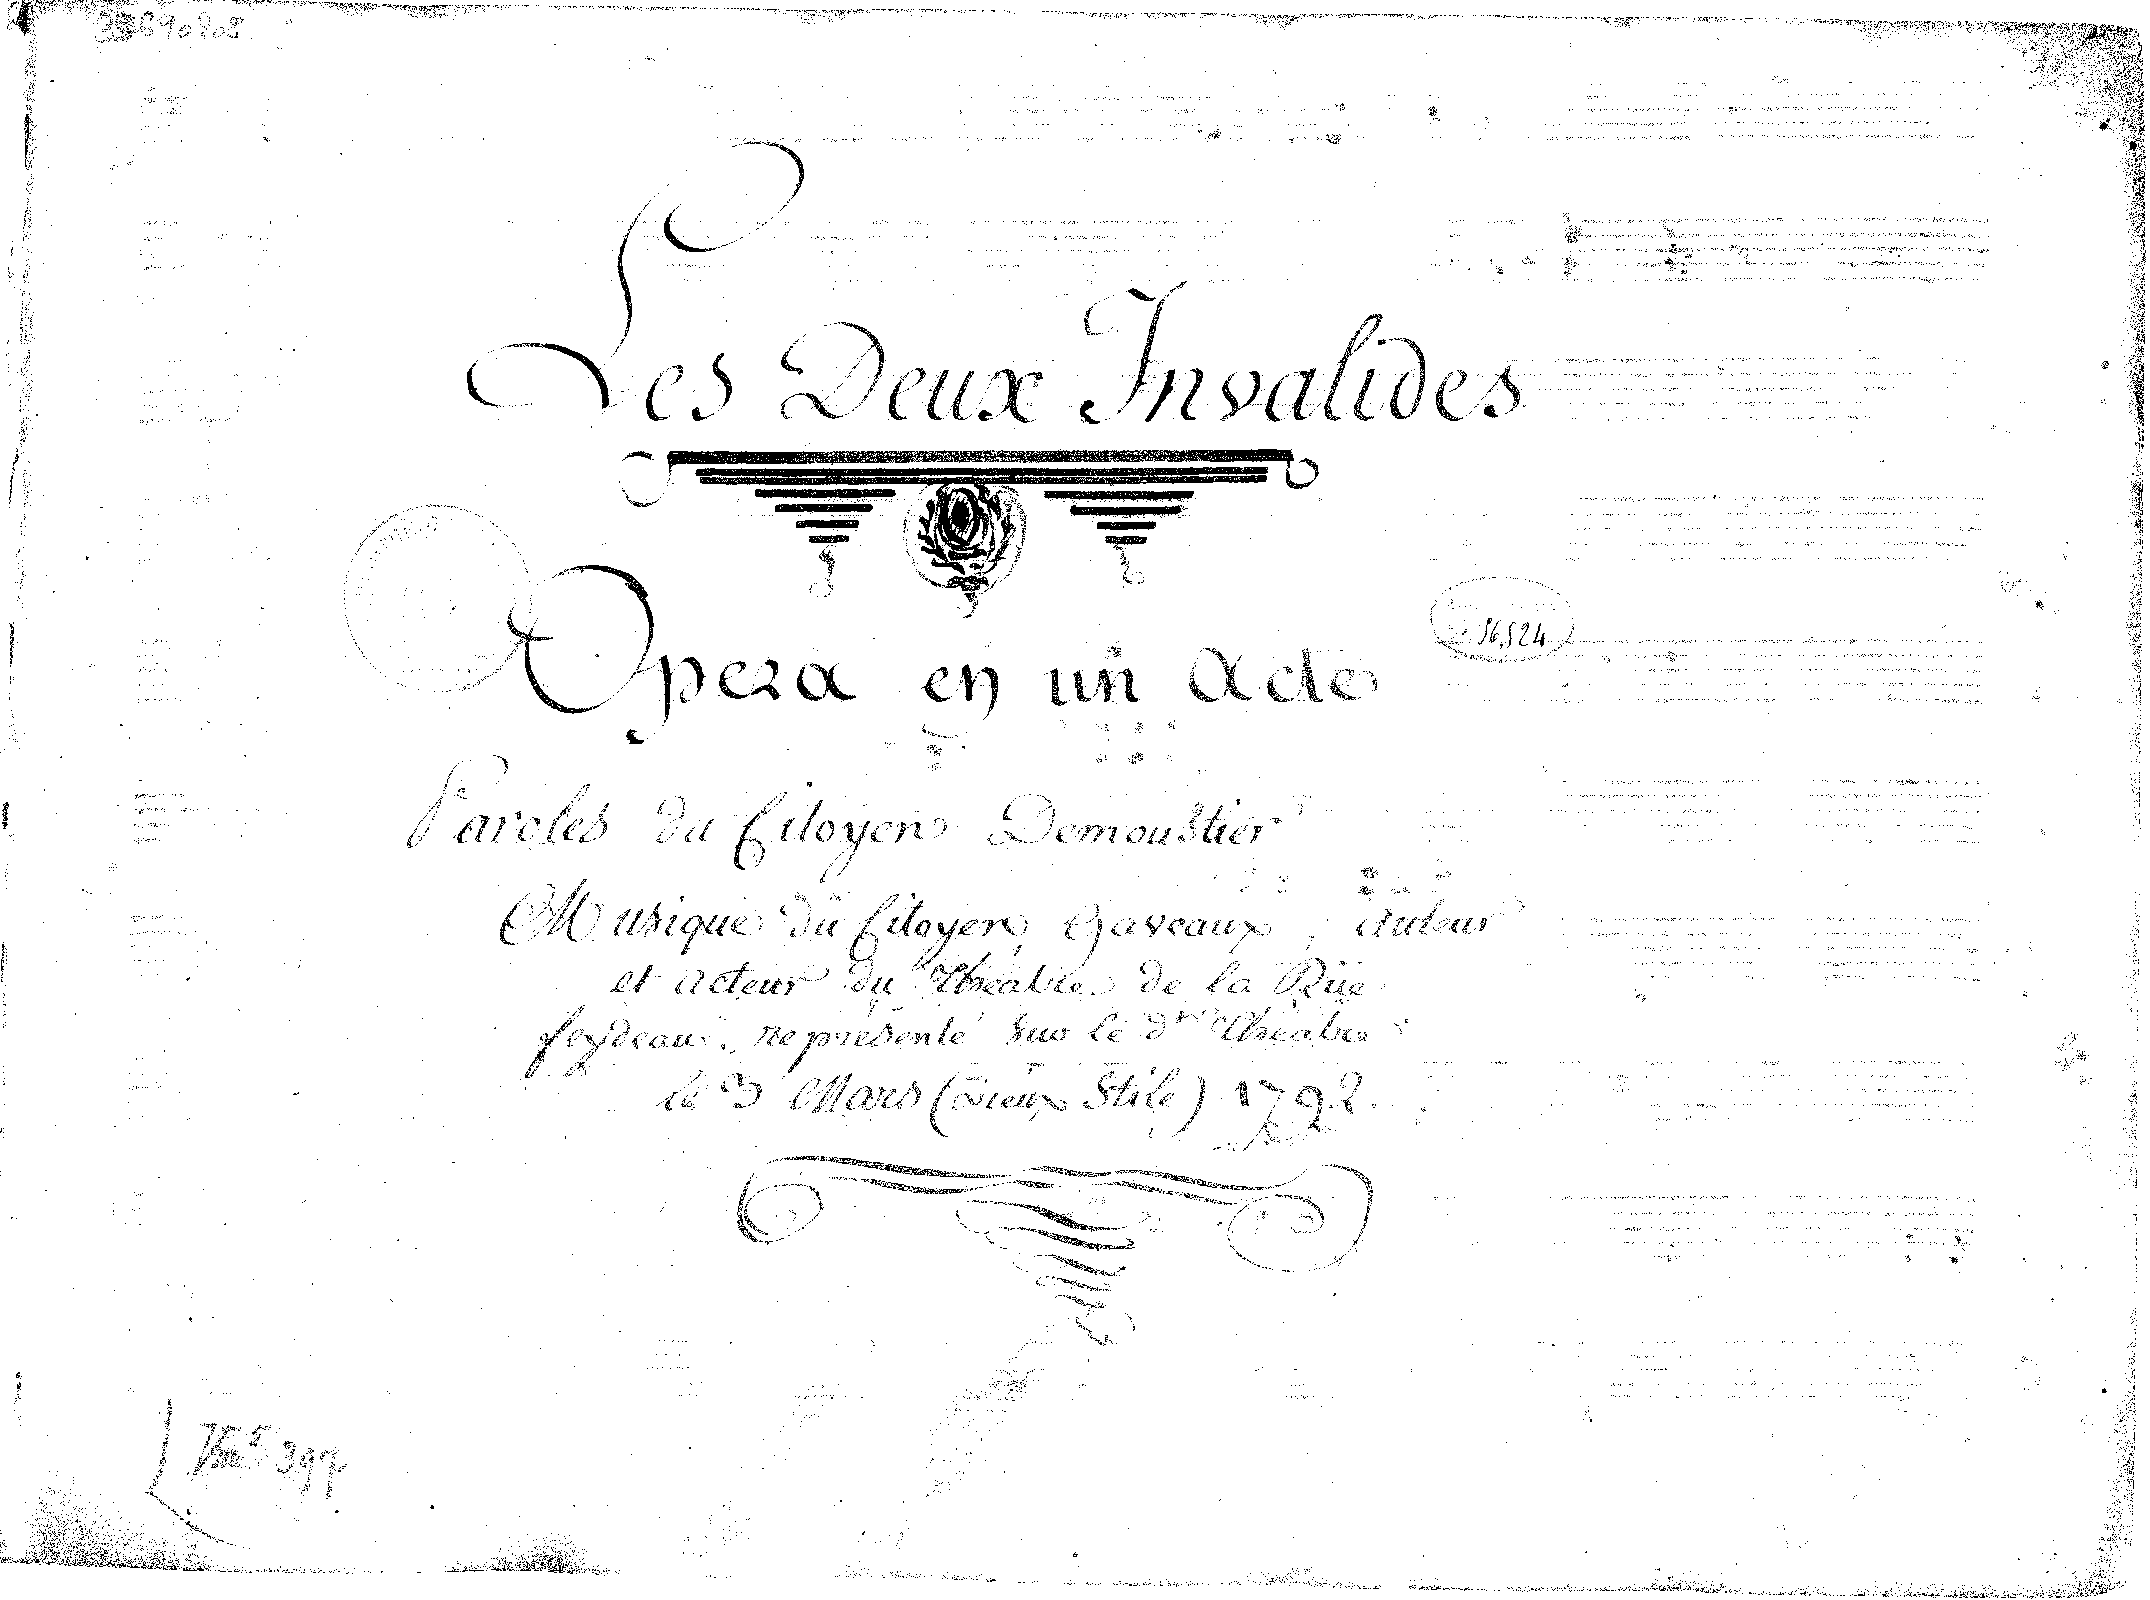 Les Deux Invalides
Opera en un Acte
56,524
Paroles du Citoyen Demoustier
Musique du Citoyen Gaveaux, auteur
et acteur du Théatre de la Rue
feydeau. representé sur le d. Théatre
le 3 Mars (vieux Stile) 1792.
Vm5 397